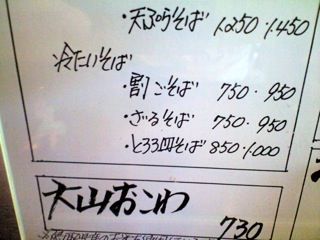 ・天ぷらそば 1,250・1,450
冷たいそば
・割ごそば 750・950
・ざるそば 750・950
・とろろそば 850・1,000
大山おこわ
730